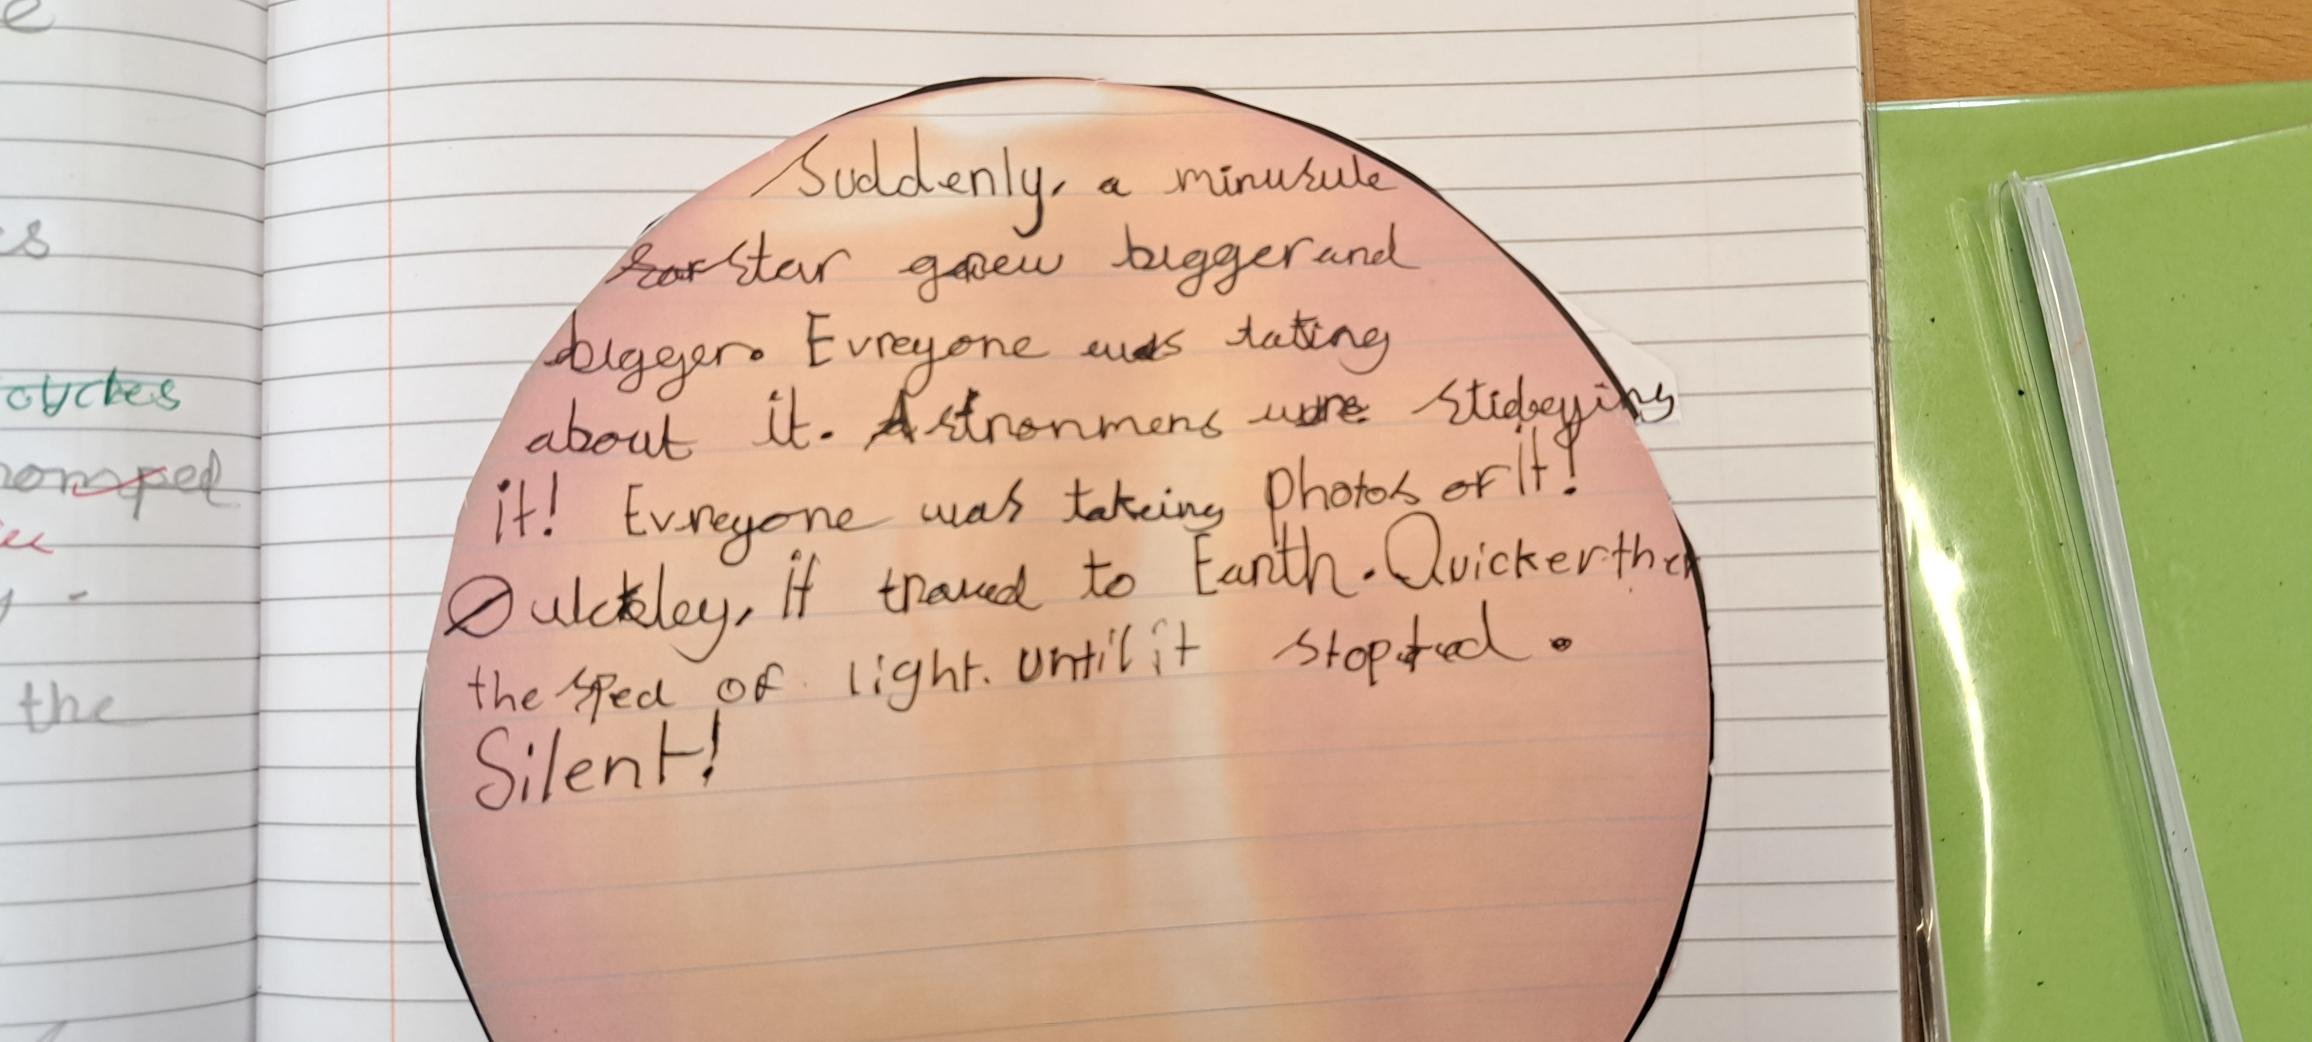 e
s
ouches
romped
the
Suddenly, a minusule
star grew bigger and
bigger. Evreyone was taking
about it. Astronmens were stideying
it! Evreyone was takeing photos of it!
Quickley, it traved to Earth. Quicker then
the sped of light. until it stopted.
Silent!